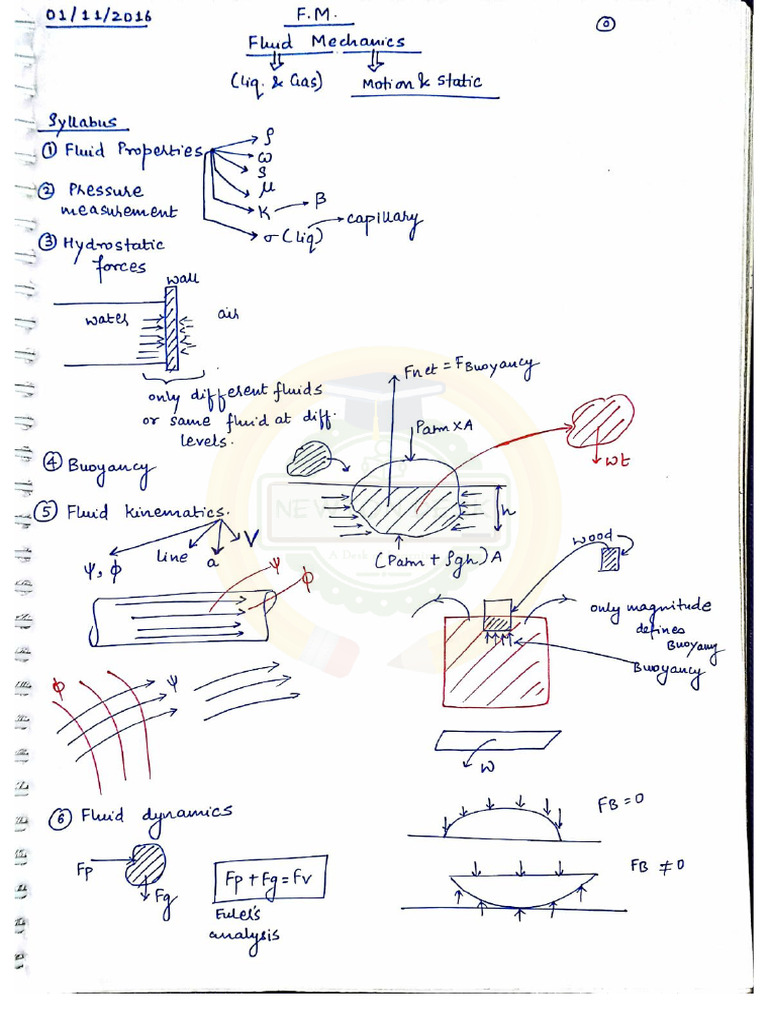 01/11/2016
F.M.
0
Fluid Mechanics
(Liq. & Gas)
Motion & Static
Syllabus
① Fluid Properties
ρ
ω
S
μ
K
β
σ (Liq)
capillary
② Pressure
measurement
③ Hydrostatic
forces
wall
water
air
only different fluids
or same fluid at diff.
levels.
④ Buoyancy
Fnet = FBuoyancy
Patm x A
wt
h
(Patm + ρgh) A
⑤ Fluid kinematics.
ψ, ϕ
Line
a
V
ψ
ϕ
wood
only magnitude
defines
Buoyany
Buoyancy
ϕ
ψ
W
⑥ Fluid dynamics
Fp
Fg
Fp + Fg = Fv
Euler's
analysis
FB = 0
FB ≠ 0